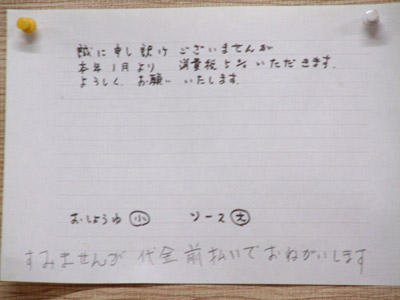 誠に申し訳けございませんが
本年1月より 消費税5%いただきます。
よろしく お願い いたします。
おしょうゆ 小 ソース 大
すみませんが 代金前払いでおねがいします